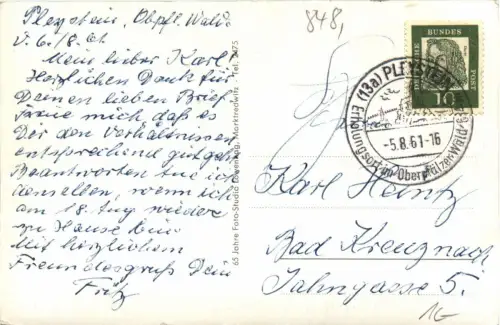 Pleystein, Obpflz. Wald
d. 6./8. 61
Mein lieber Karl
Herzlichen Dank für
Deinen lieben Brief
freue mich, daß es
Dir den Verhältnissen
entsprechend gut geht
Beantworten tue ich
denselben, wenn ich
am 18. Aug wieder
zu Hause bin
Mit herzlichem
Freundesgruß Dein
Fritz
65 Jahre Foto-Studio Marktredwitz Tel.
848,
DEUTSCHE BUNDESPOST
10
(13a) PLEYSTEIN
-5.8.61-16
Erholungsort im Oberpfälzer Wald
Karl Heintz
Bad Kreuznach
Jahngasse 5.